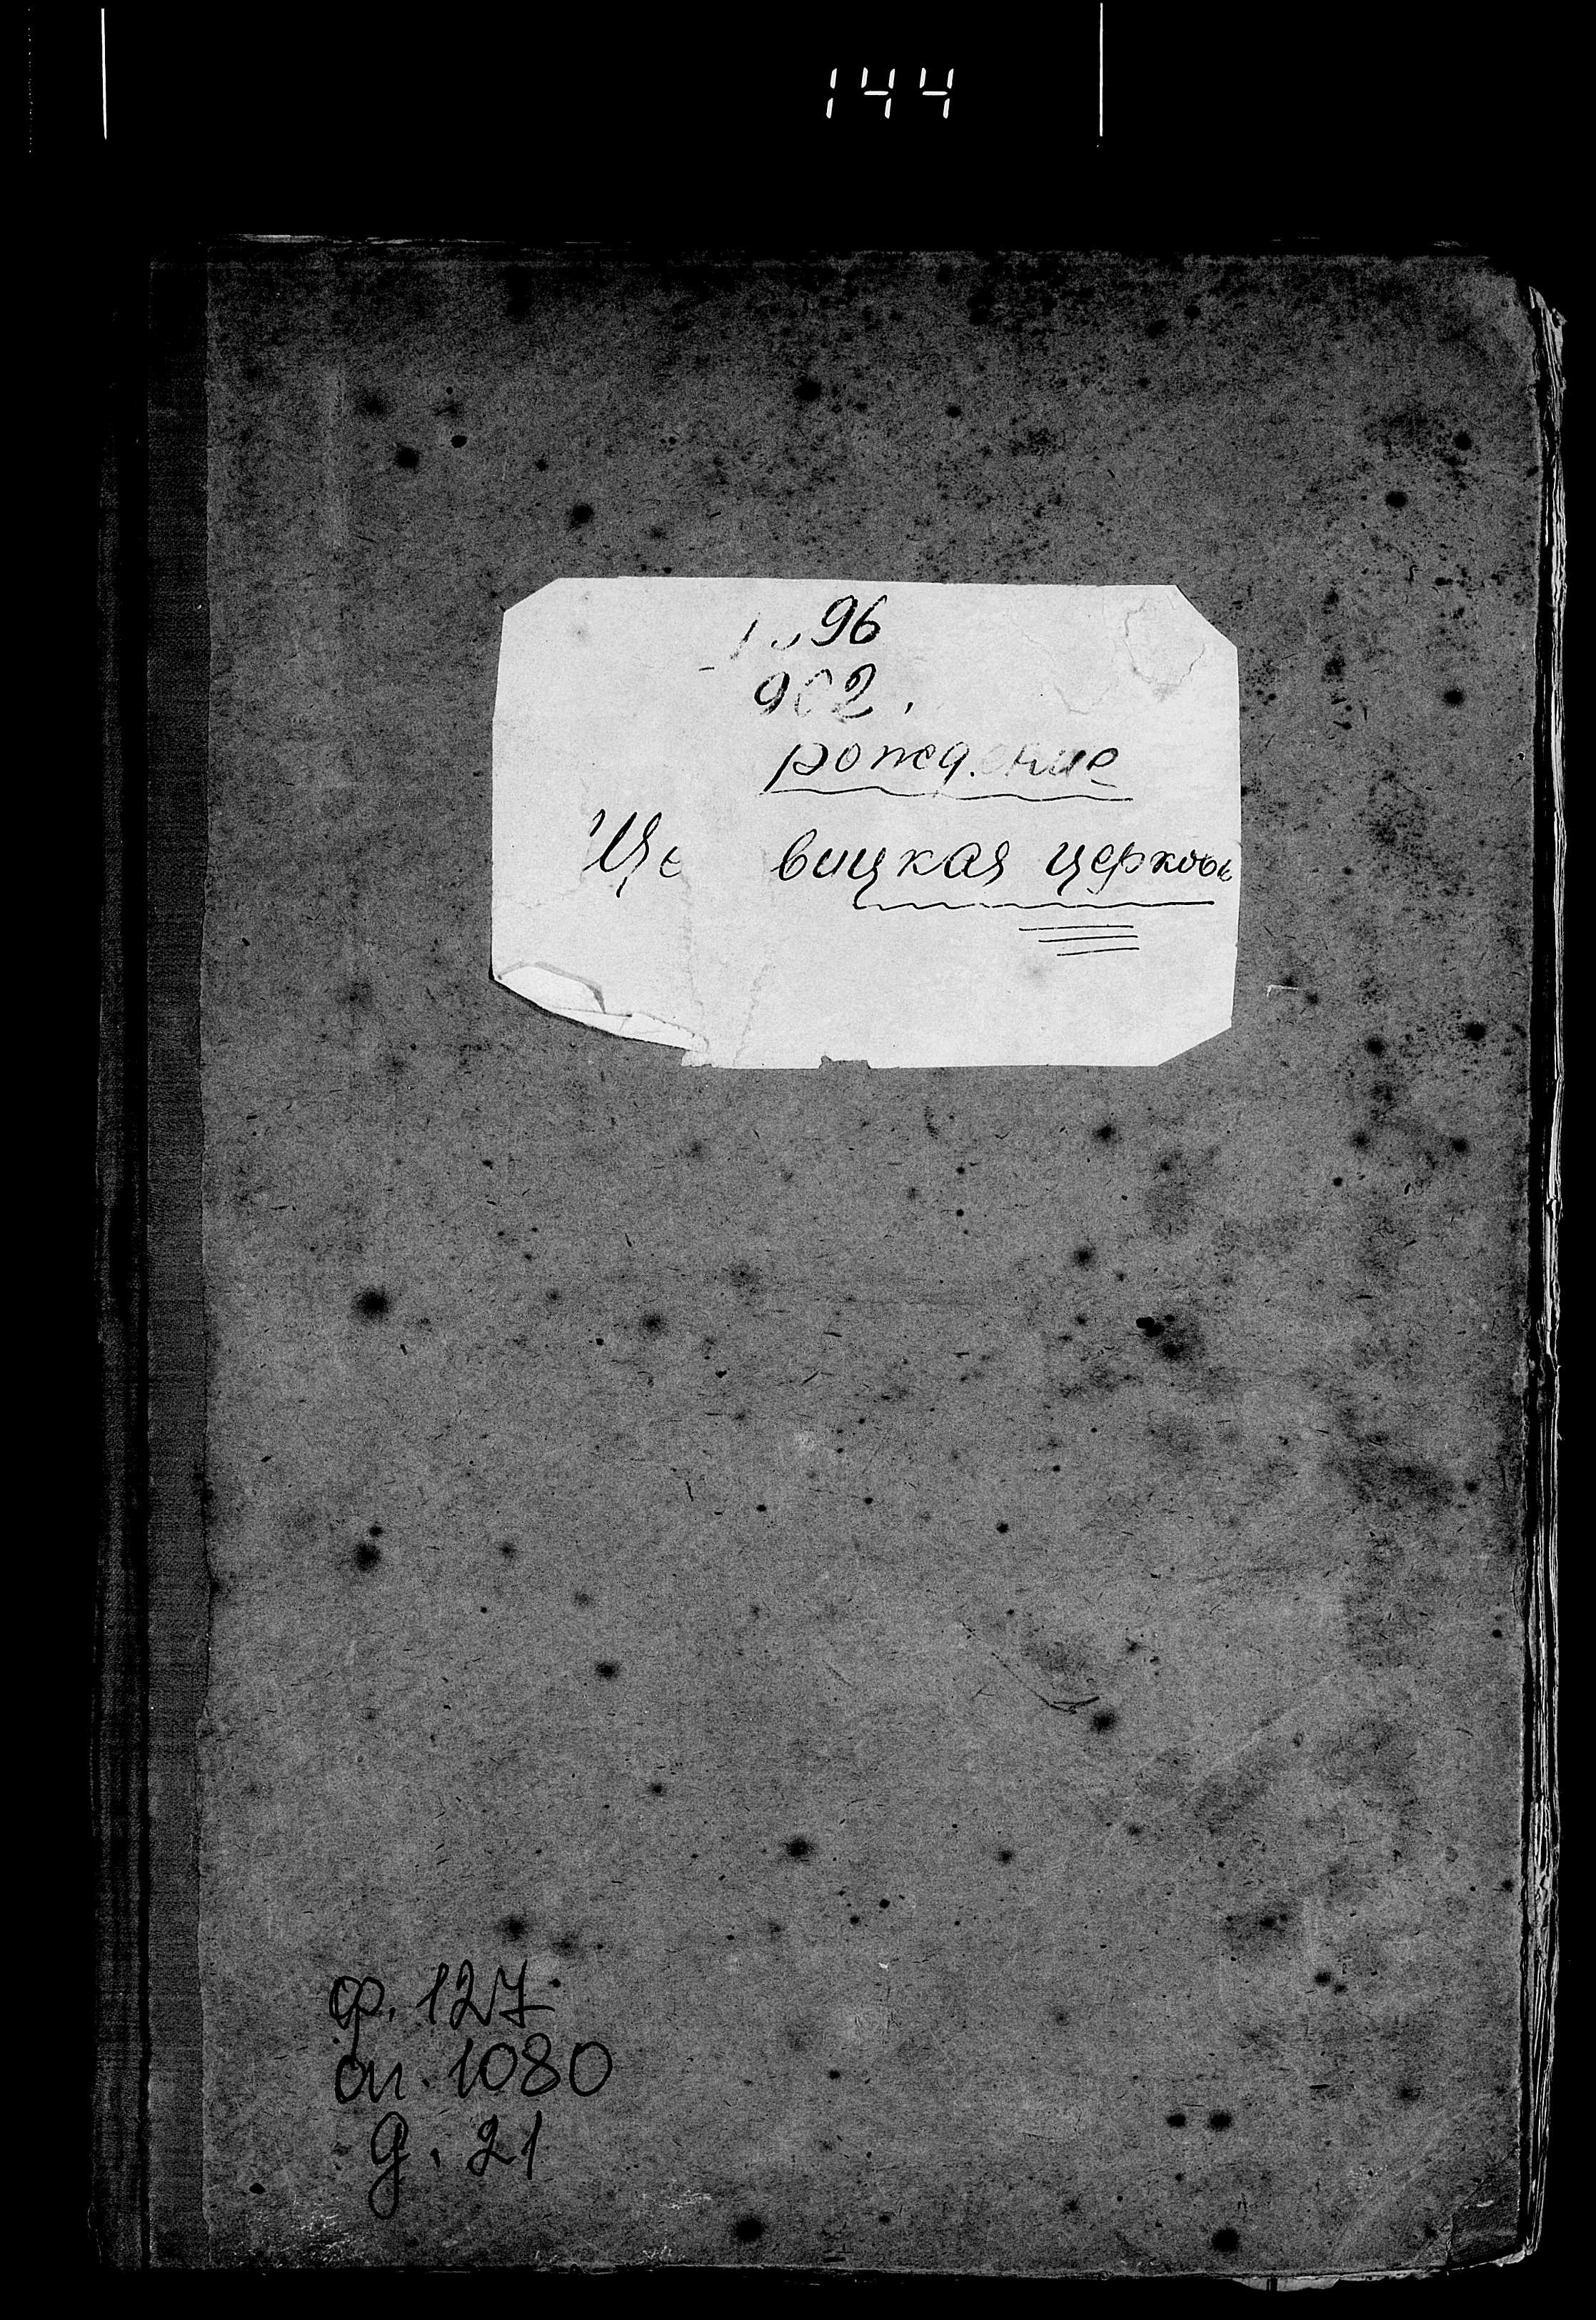 144
96
902.
рождение
вицкая церковь
ф. 127
оп. 1080
д. 21